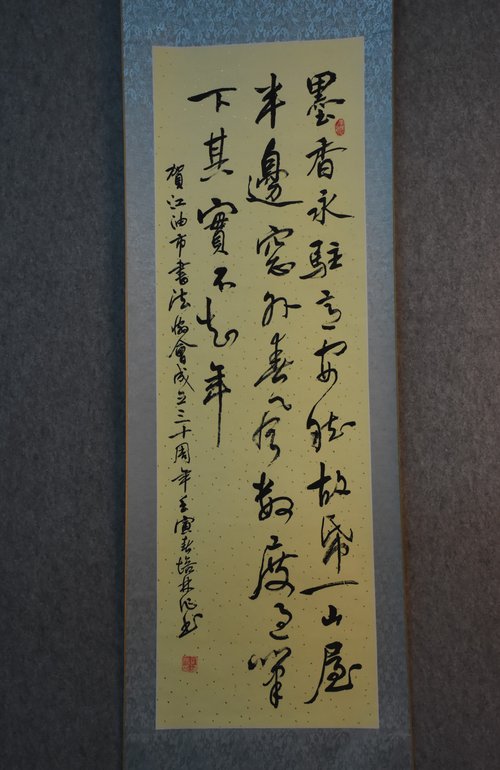 墨香永駐意安然故帋一山屋
半邊窓外春風數度過筆
下其實不知年
賀江油市書法協會成立三十周年壬寅春培林書